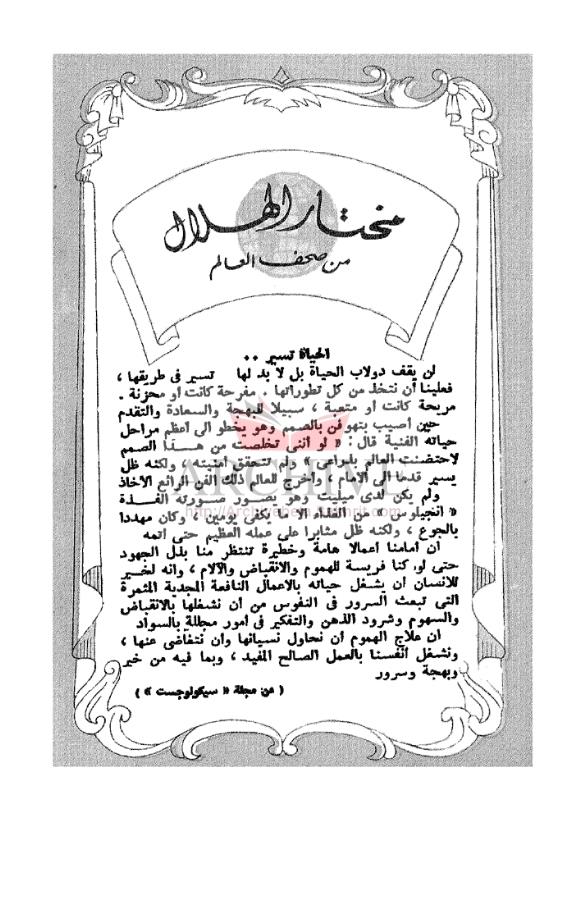 مختار الهلال
من صحف العالم
الحياة تسير ..
لن يقف دولاب الحياة بل لا بد لها تسير فى طريقها ،
فعلينا أن نتخذ من كل تطوراتها ، مفرحة كانت أو محزنة .
مريحة كانت أو متعبة ، سبيلا للبهجة والسعادة والتقدم
حين أصيب بتهوفن بالصمم وهو يخطو الى أعظم مراحل
حياته الفنية قال : « لو اننى تخلصت من هذا الصمم
لاحتضنت العالم بذراعى » ولم تتحقق أمنيته ، ولكنه ظل
يسير قدما الى الامام ، وأخرج للعالم ذلك الفن الرائع الأخاذ
ولم يكن لدى ميليت وهو يصور صورته الفذة
« انجيلوس » من الغذاء الا ما يكفى يومين ، وكان مهددا
بالجوع ، ولكنه ظل مثابرا على عمله العظيم حتى أتمه
ان أمامنا أعمالا هامة وخطيرة تنتظر منا بذل الجهود
حتى لو كنا فريسة للهموم والانقباض والآلام ، وانه لخير
للانسان أن يشغل حياته بالاعمال النافعة المجدية المثمرة
التى تبعث السرور فى النفوس من أن نشغلها بالانقباض
والسهوم وشرود الذهن والتفكير فى أمور مجللة بالسواد
ان علاج الهموم أن نحاول نسيانها وان نتغاضى عنها ،
ونشغل أنفسنا بالعمل الصالح المفيد ، وبما فيه من خير
وبهجة وسرور
( من مجلة « سيكولوجست » )
ARCHIVE